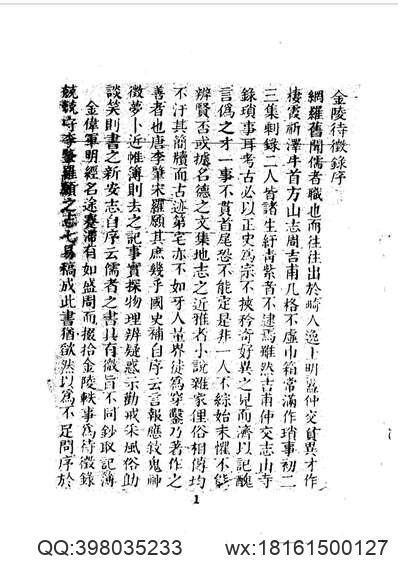 金陵待徵錄序
網羅舊聞儒者職也而往往出於畸人逸士明盛仲交負異才作
棲霞祈澤牛首方山志周吉甫几格不虛巾箱常滿作瑣事初二
三集剩錄二人皆諸生紆青紫者不逮焉雖然吉甫仲交志山寺
錄瑣事耳考古必以正史為宗不挾矜奇好異之見而濟以記醜
言偽之才一事不貫首尾愁不能定是非一人不綜始末懼不能
辨賢否或據名德之文集地志之近雅者小說雜家俚俗相傳均
不汙其簡牘而古迹第宅亦不如牙人並界徒為穿鑿乃著作之
善者也唐李肇宋羅願其庶幾乎國史補自序云言報應敘鬼神
徵夢卜近帷簿則去之記事實探物理辨疑惑示勸戒采風俗助
談笑則書之新安志自序云儒者之書具有微旨不同鈔取記簿
金偉軍明經名途蹇滯有如盛周而掇拾金陵軼事為待徵錄
兢兢守李肇羅願之志七易稿成此書猶欿然以為不足問序於
1
QQ:398035233
wx:18161500127